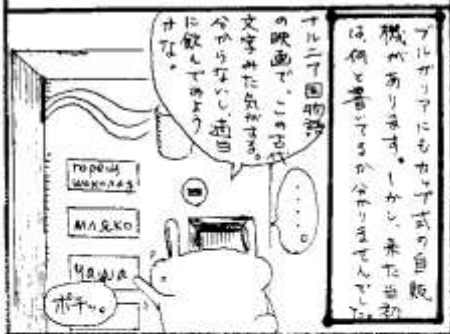 ブルガリアにもカップ式の自販
機があります。しかし、来た当初
は、何と書いてるか分かりませんでした。
ナルニア国物語
の映画で、この古代
文字みた気がする。
分からないし、適当
に飲んでみよう
かな。
・・・・・。
горещ
шоколад
мляко
чаша
ポチッ。